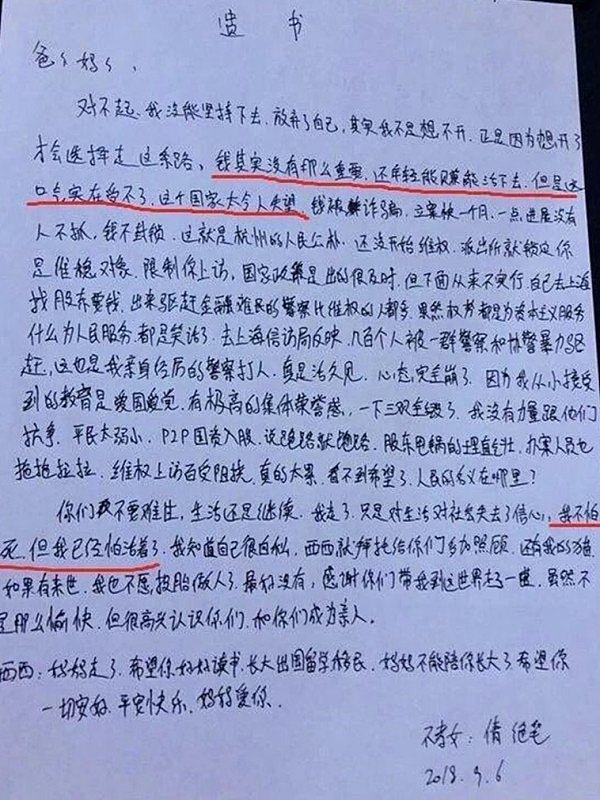 遗 书
爸爸妈妈、
对不起，我没能坚持下去，放弃了自己，其实我不是想不开，正是因为想开了
才会选择走这条路、钱其实没有那么重要，还年轻能赚能活下去，但是这
口气，实在受不了，这个国家太令人失望，钱被诈骗，立案快一个月，一点进展没有
人不抓，钱不封锁，这就是杭州的人民公朴，还没开始维权，派出所就锁定你
是维稳对象，限制你上访，国家政策是出的很及时，但下面从来不实行，自己去上海
找股东要钱，出来驱赶金融难民的警察比维权的人都多，果然权势都是为资本主义服务
什么为人民服务，都是笑话了，去上海信访局反映，几百个人被一群警察和协警暴力驱
赶，这也是我亲身经历的警察打人，真是活久见，心态完全崩了，因为我从小接受
到的教育是爱国爱党，有极高的集体荣誉感，一下三观全毁了，我没有力量跟他们
抗争，平民太弱小，P2P国资入股，说跑路就跑路，股东甩锅的理直气壮，办案人员也
拖拖拉拉，维权上访百受阻挠，真的太累，看不到希望了，人民的名义在哪里？
你们不要难过，生活还是继续，我走了，只是对生活对社会失去了信心，我不怕
死，但我已经怕活着了，我知道自己很自私，西西就拜托给你们多加照顾，还有我的猫
如果有来世，我也不愿投胎做人了，最好没有，感谢你们带我到这世界走了一遭，虽然不
是那么愉快，但很高兴认识你们，和你们成为亲人。
西西：妈妈走了，希望你好好读书，长大出国留学移民，妈妈不能陪你长大了希望你
一切安好，平安快乐，妈妈爱你。
不孝女：倩 绝笔
2018.9.6